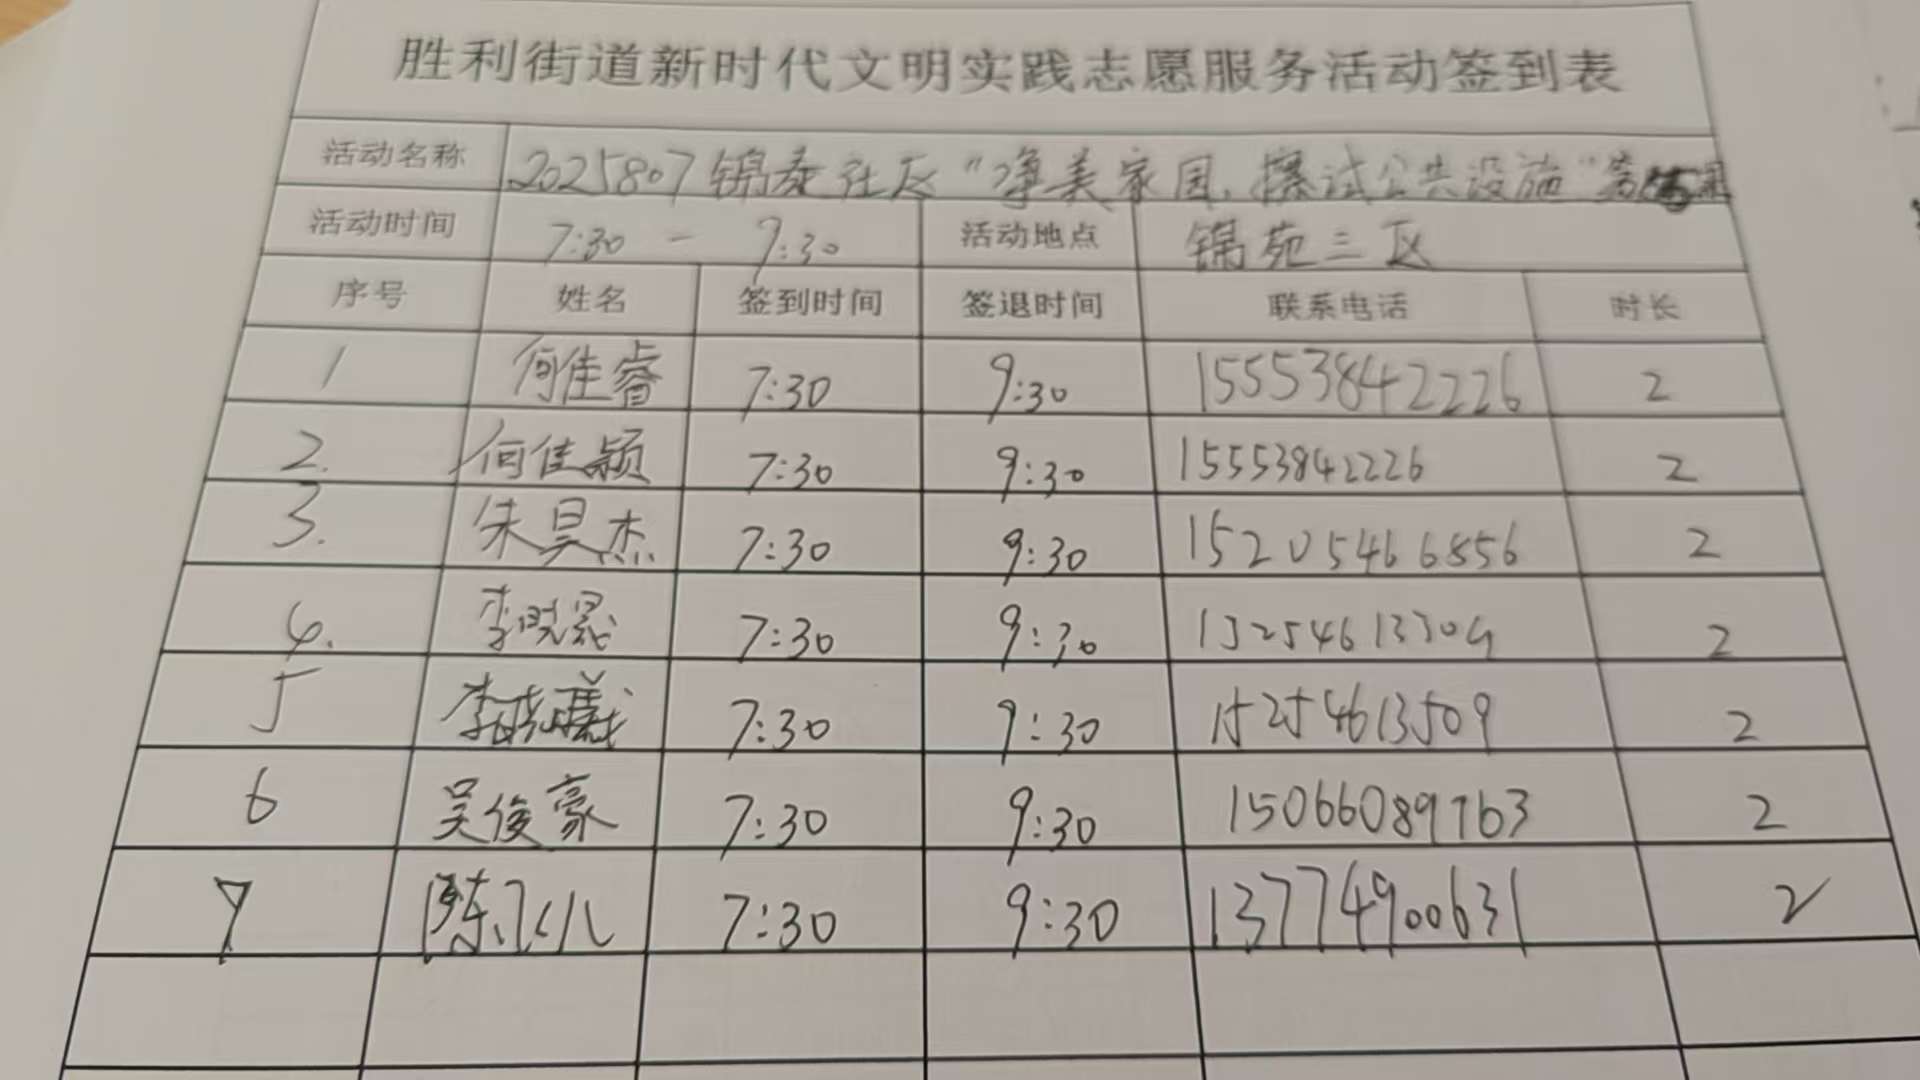 胜利街道新时代文明实践志愿服务活动签到表
活动名称 2025807锦泰社区“净美家园,擦试公共设施”
活动时间 7:30 — 9:30 活动地点 锦苑三区
序号 姓名 签到时间 签退时间 联系电话 时长
1 何佳睿 7:30 9:30 15553842226 2
2. 何佳颖 7:30 9:30 15553842226 2
3. 朱昊杰 7:30 9:30 15205466856 2
4. 李晓晟 7:30 9:30 2
5 李 7:30 9:30 15254613509 2
6 吴俊豪 7:30 9:30 15066089763 2
7 陈 7:30 9:30 13774900631 2